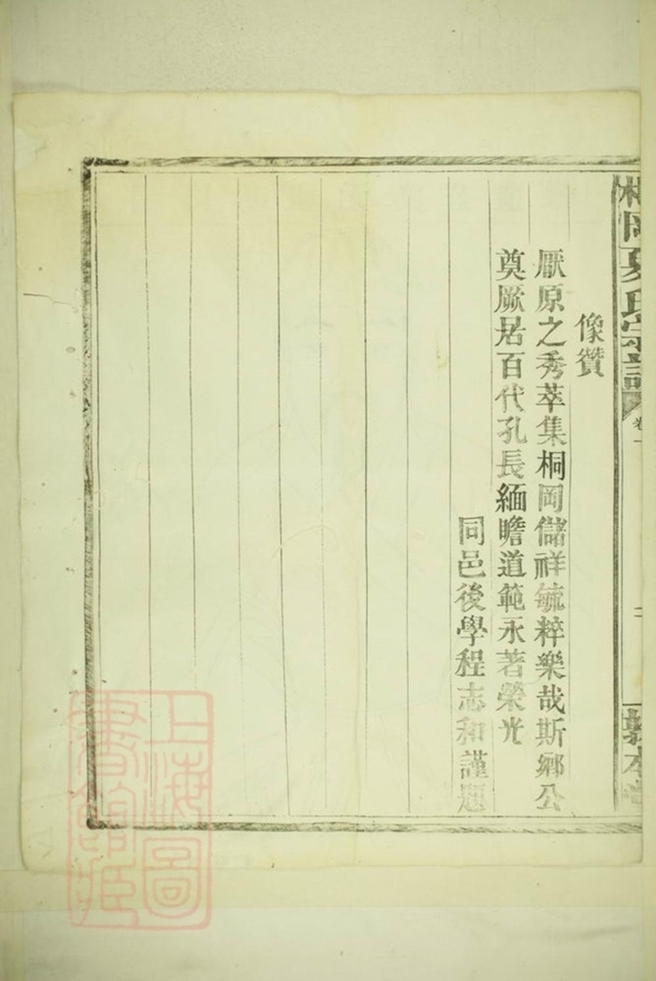 桐岡夏氏宗譜 卷一
像贊
厭原之秀萃集桐岡儲祥毓粹樂哉斯鄉公
奠厥居百代孔長緬瞻道範永著榮光
同邑後學程志和謹題
上海圖
書館藏